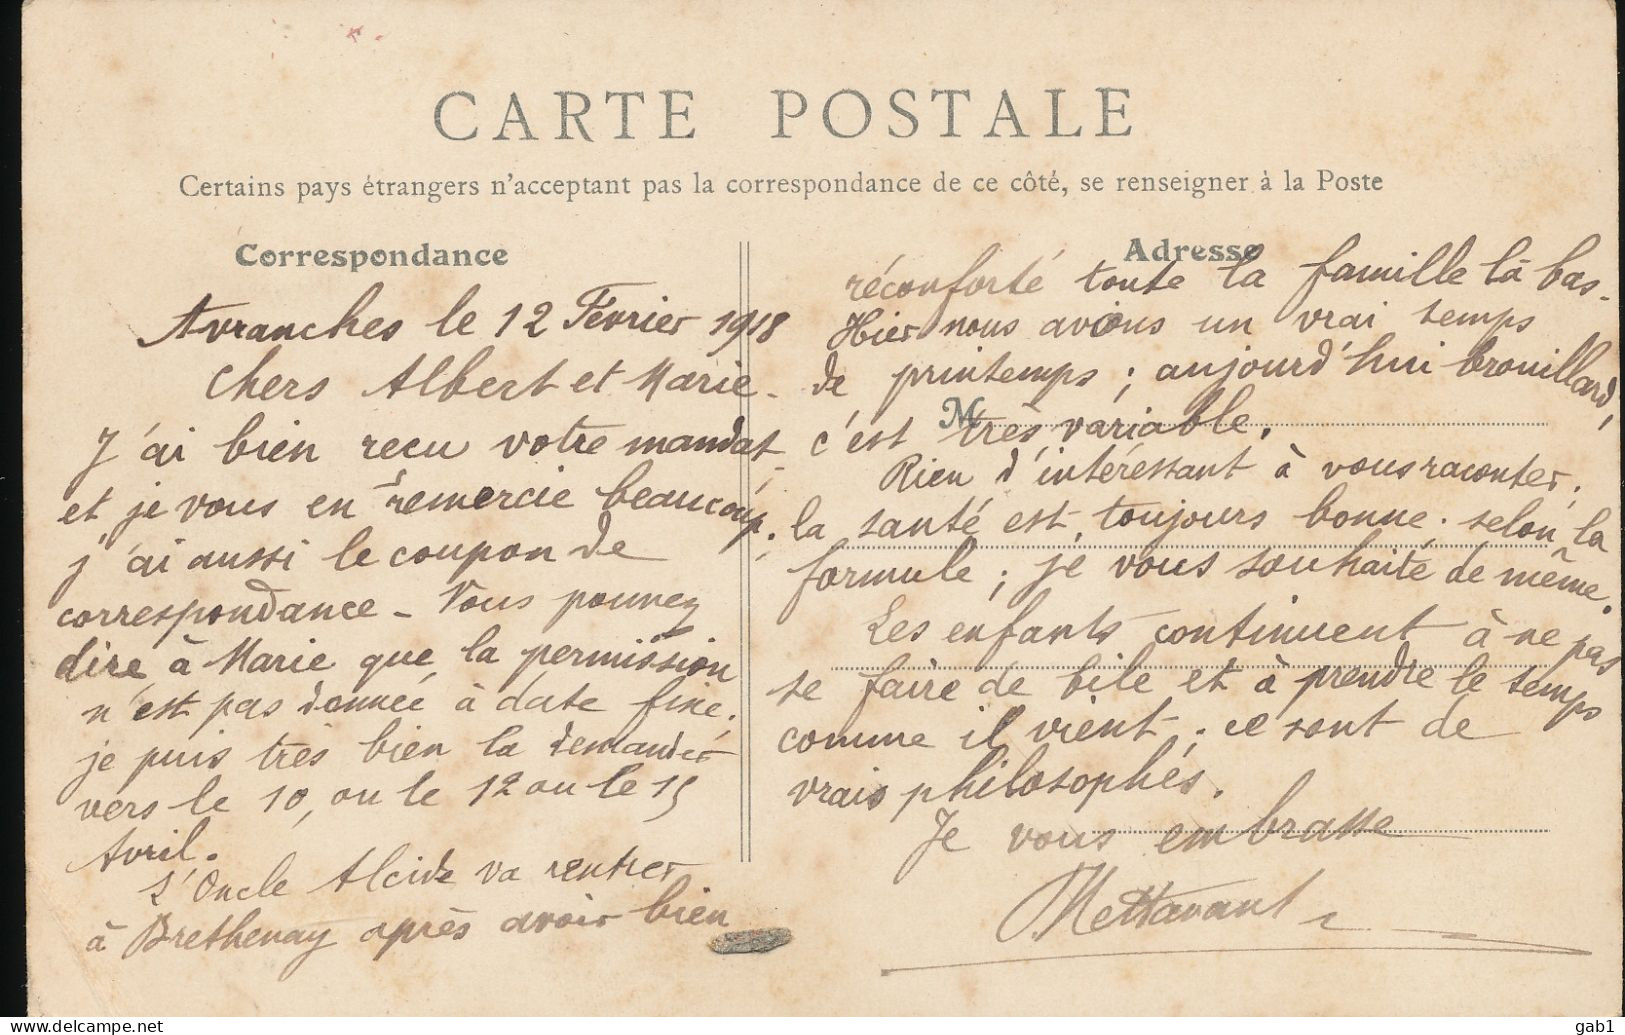 CARTE POSTALE
Certains pays étrangers n'acceptant pas la correspondance de ce côté, se renseigner à la Poste
Correspondance
Avranches le 12 Février 1918
Chers Albert et Marie -
J'ai bien recu votre mandat
et je vous en remercie beaucoup.
j'ai aussi le coupon de
correspondance - Vous pouvez
dire à Marie que la permission
n'est pas donnée à date fixe.
je puis très bien la demander
vers le 10, ou le 12 ou le 15
Avril.
L'Oncle Alcide va rentrer
à Brethenay après avoir bien
Adresse
réconforté toute la famille là bas -
Hier nous avions un vrai temps
de printemps ; aujourd'hui brouillard,
M
c'est très variable.
Rien d'intéressant à vous raconter.
la santé est toujours bonne. selon la
formule ; je vous souhaite de même.
Les enfants continuent à ne pas
se faire de bile et à prendre le temps
comme il vient ; ce sont de
vrais philosophes.
Je vous embrasse
Mettavant
gab1
www.delcampe.net